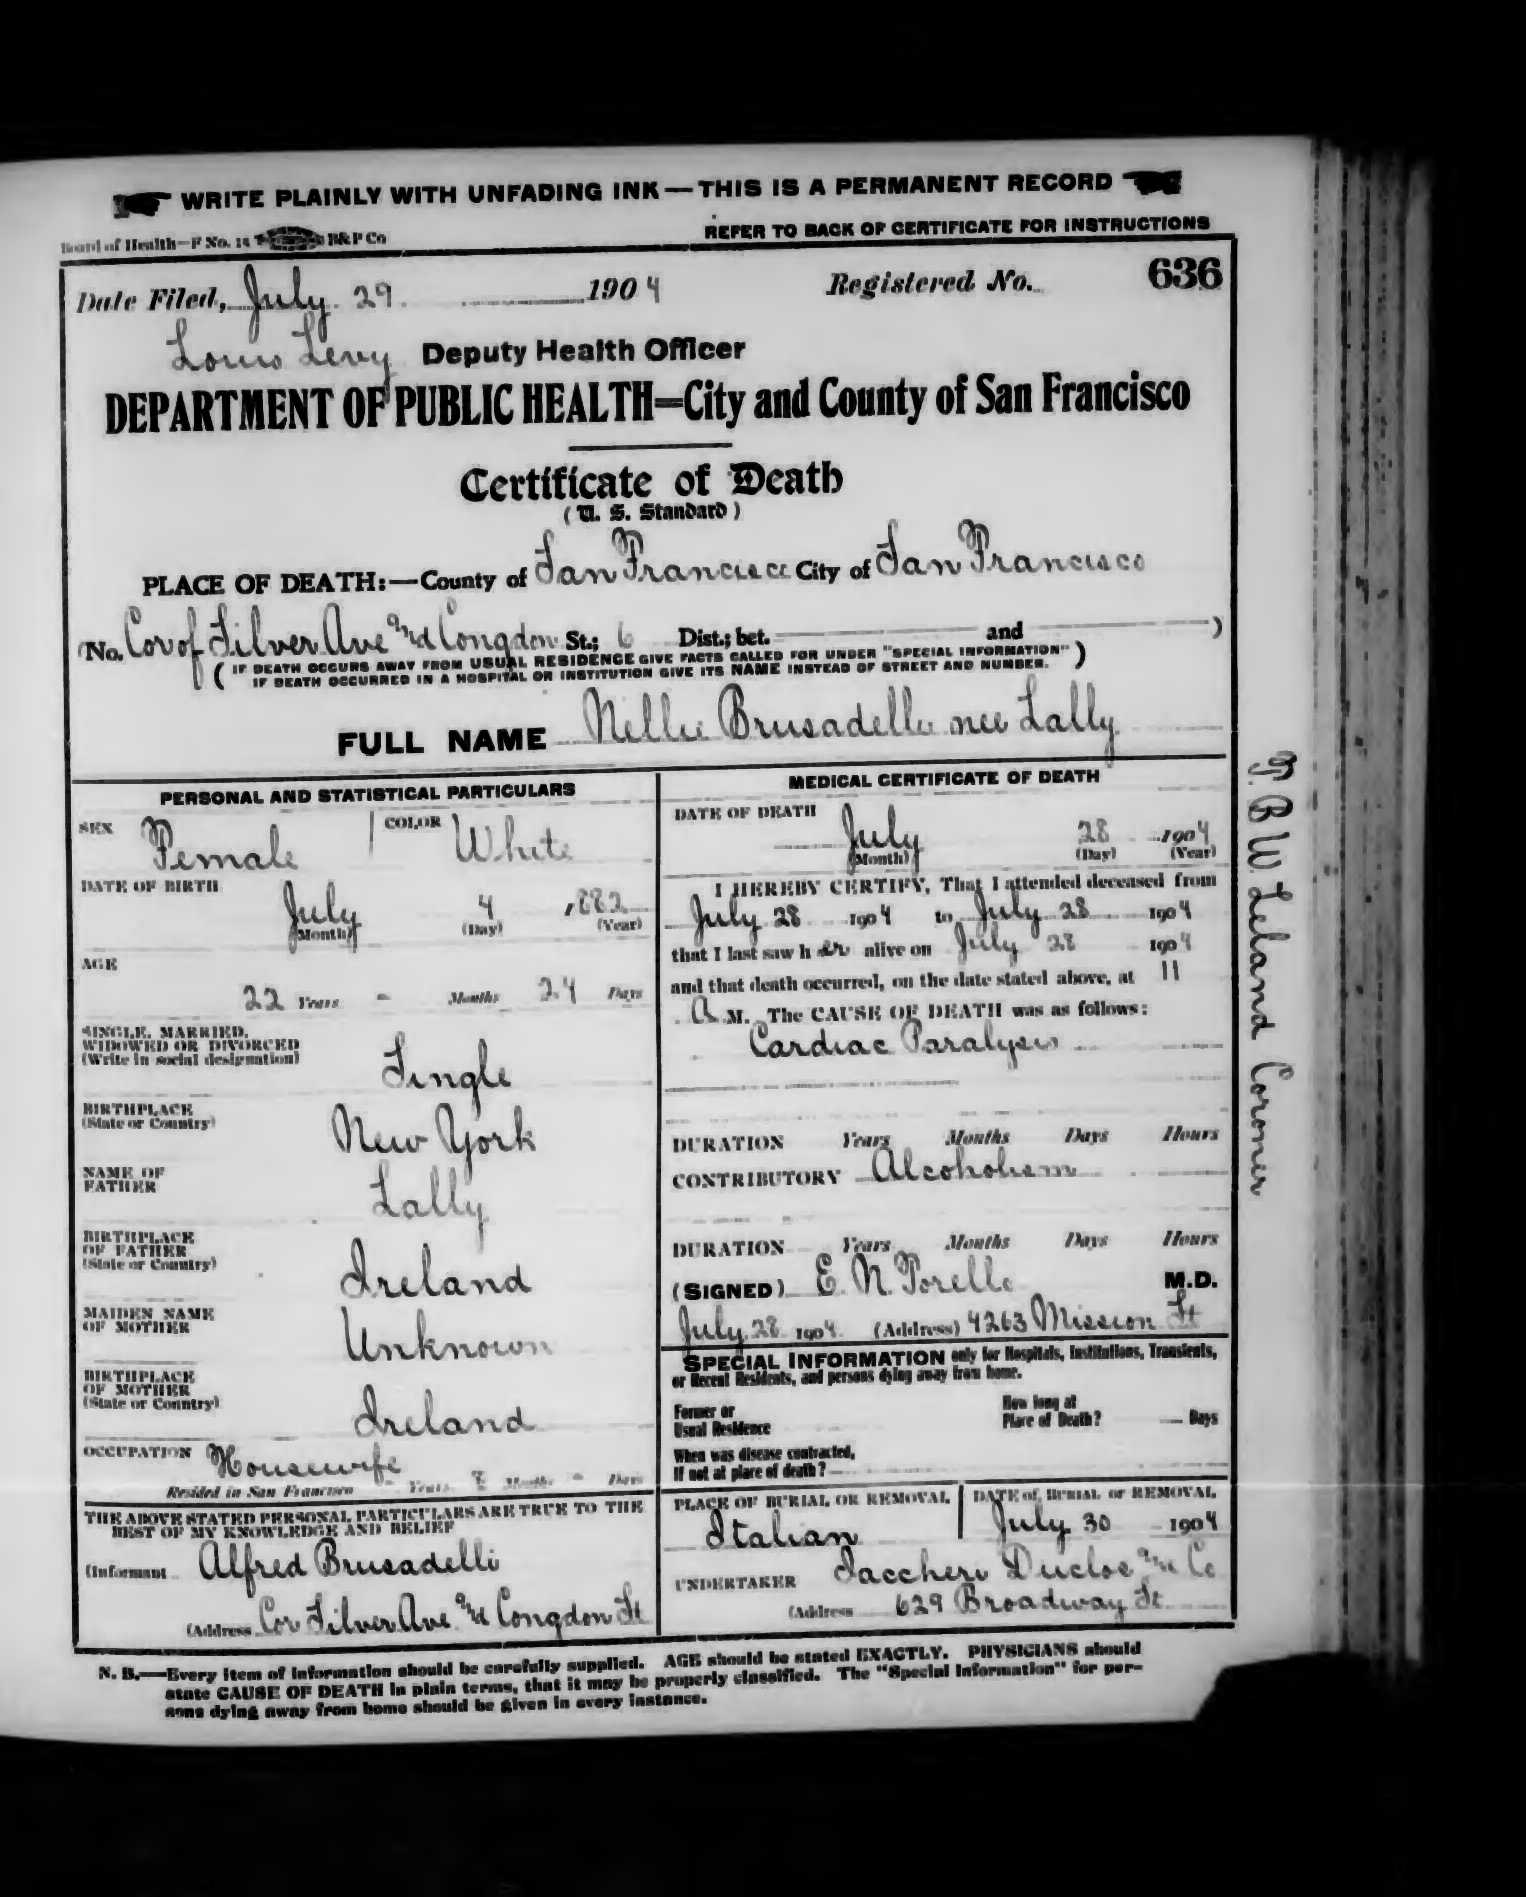 WRITE PLAINLY WITH UNFADING INK—THIS IS A PERMANENT RECORD
Board of Health—F No. 14 B&P Co
REFER TO BACK OF CERTIFICATE FOR INSTRUCTIONS
Date Filed, July 29 1904 Registered No. 636
Louis Levy Deputy Health Officer
DEPARTMENT OF PUBLIC HEALTH—City and County of San Francisco
Certificate of Death
(U. S. Standard)
PLACE OF DEATH:—County of San Francisco City of San Francisco
(No. Cor of Silver Ave and Congdon St.; 6 Dist.; bet. and )
( IF DEATH OCCURS AWAY FROM USUAL RESIDENCE GIVE FACTS CALLED FOR UNDER "SPECIAL INFORMATION" )
IF DEATH OCCURRED IN A HOSPITAL OR INSTITUTION GIVE ITS NAME INSTEAD OF STREET AND NUMBER.
FULL NAME Nellie Brusadelli nee Lally
PERSONAL AND STATISTICAL PARTICULARS
SEX Female COLOR White
DATE OF BIRTH
July 4 1882
(Month) (Day) (Year)
AGE
22 Years - Months 24 Days
SINGLE, MARRIED,
WIDOWED OR DIVORCED
(Write in social designation)
Single
BIRTHPLACE
(State or Country)
New York
NAME OF
FATHER
Lally
BIRTHPLACE
OF FATHER
(State or Country)
Ireland
MAIDEN NAME
OF MOTHER
Unknown
BIRTHPLACE
OF MOTHER
(State or Country)
Ireland
OCCUPATION Housewife
Resided in San Francisco - Years Months - Days
THE ABOVE STATED PERSONAL PARTICULARS ARE TRUE TO THE
BEST OF MY KNOWLEDGE AND BELIEF
(Informant Alfred Brusadelli
(Address Cor Silver Ave and Congdon St
MEDICAL CERTIFICATE OF DEATH
DATE OF DEATH
July 28 1904
(Month) (Day) (Year)
I HEREBY CERTIFY, That I attended deceased from
July 28 1904 to July 28 1904
that I last saw h er alive on July 28 1904
and that death occurred, on the date stated above, at 11
A M. The CAUSE OF DEATH was as follows:
Cardiac Paralysis
DURATION Years Months Days Hours
CONTRIBUTORY Alcoholism
DURATION Years Months Days Hours
(SIGNED) E. N. Torello M.D.
July 28 1904 (Address) 4263 Mission St
SPECIAL INFORMATION only for Hospitals, Institutions, Transients,
or Recent Residents, and persons dying away from home.
Former or
Usual Residence
How long at
Place of Death? Days
When was disease contracted,
If not at place of death?
PLACE OF BURIAL OR REMOVAL
Italian
DATE of BURIAL or REMOVAL
July 30 1904
UNDERTAKER Iaccheri Duclos and Co
(Address 629 Broadway St
N. B.—Every item of information should be carefully supplied. AGE should be stated EXACTLY. PHYSICIANS should
state CAUSE OF DEATH in plain terms, that it may be properly classified. The "Special Information" for per-
sons dying away from home should be given in every instance.
T. B. W. Leland Coroner